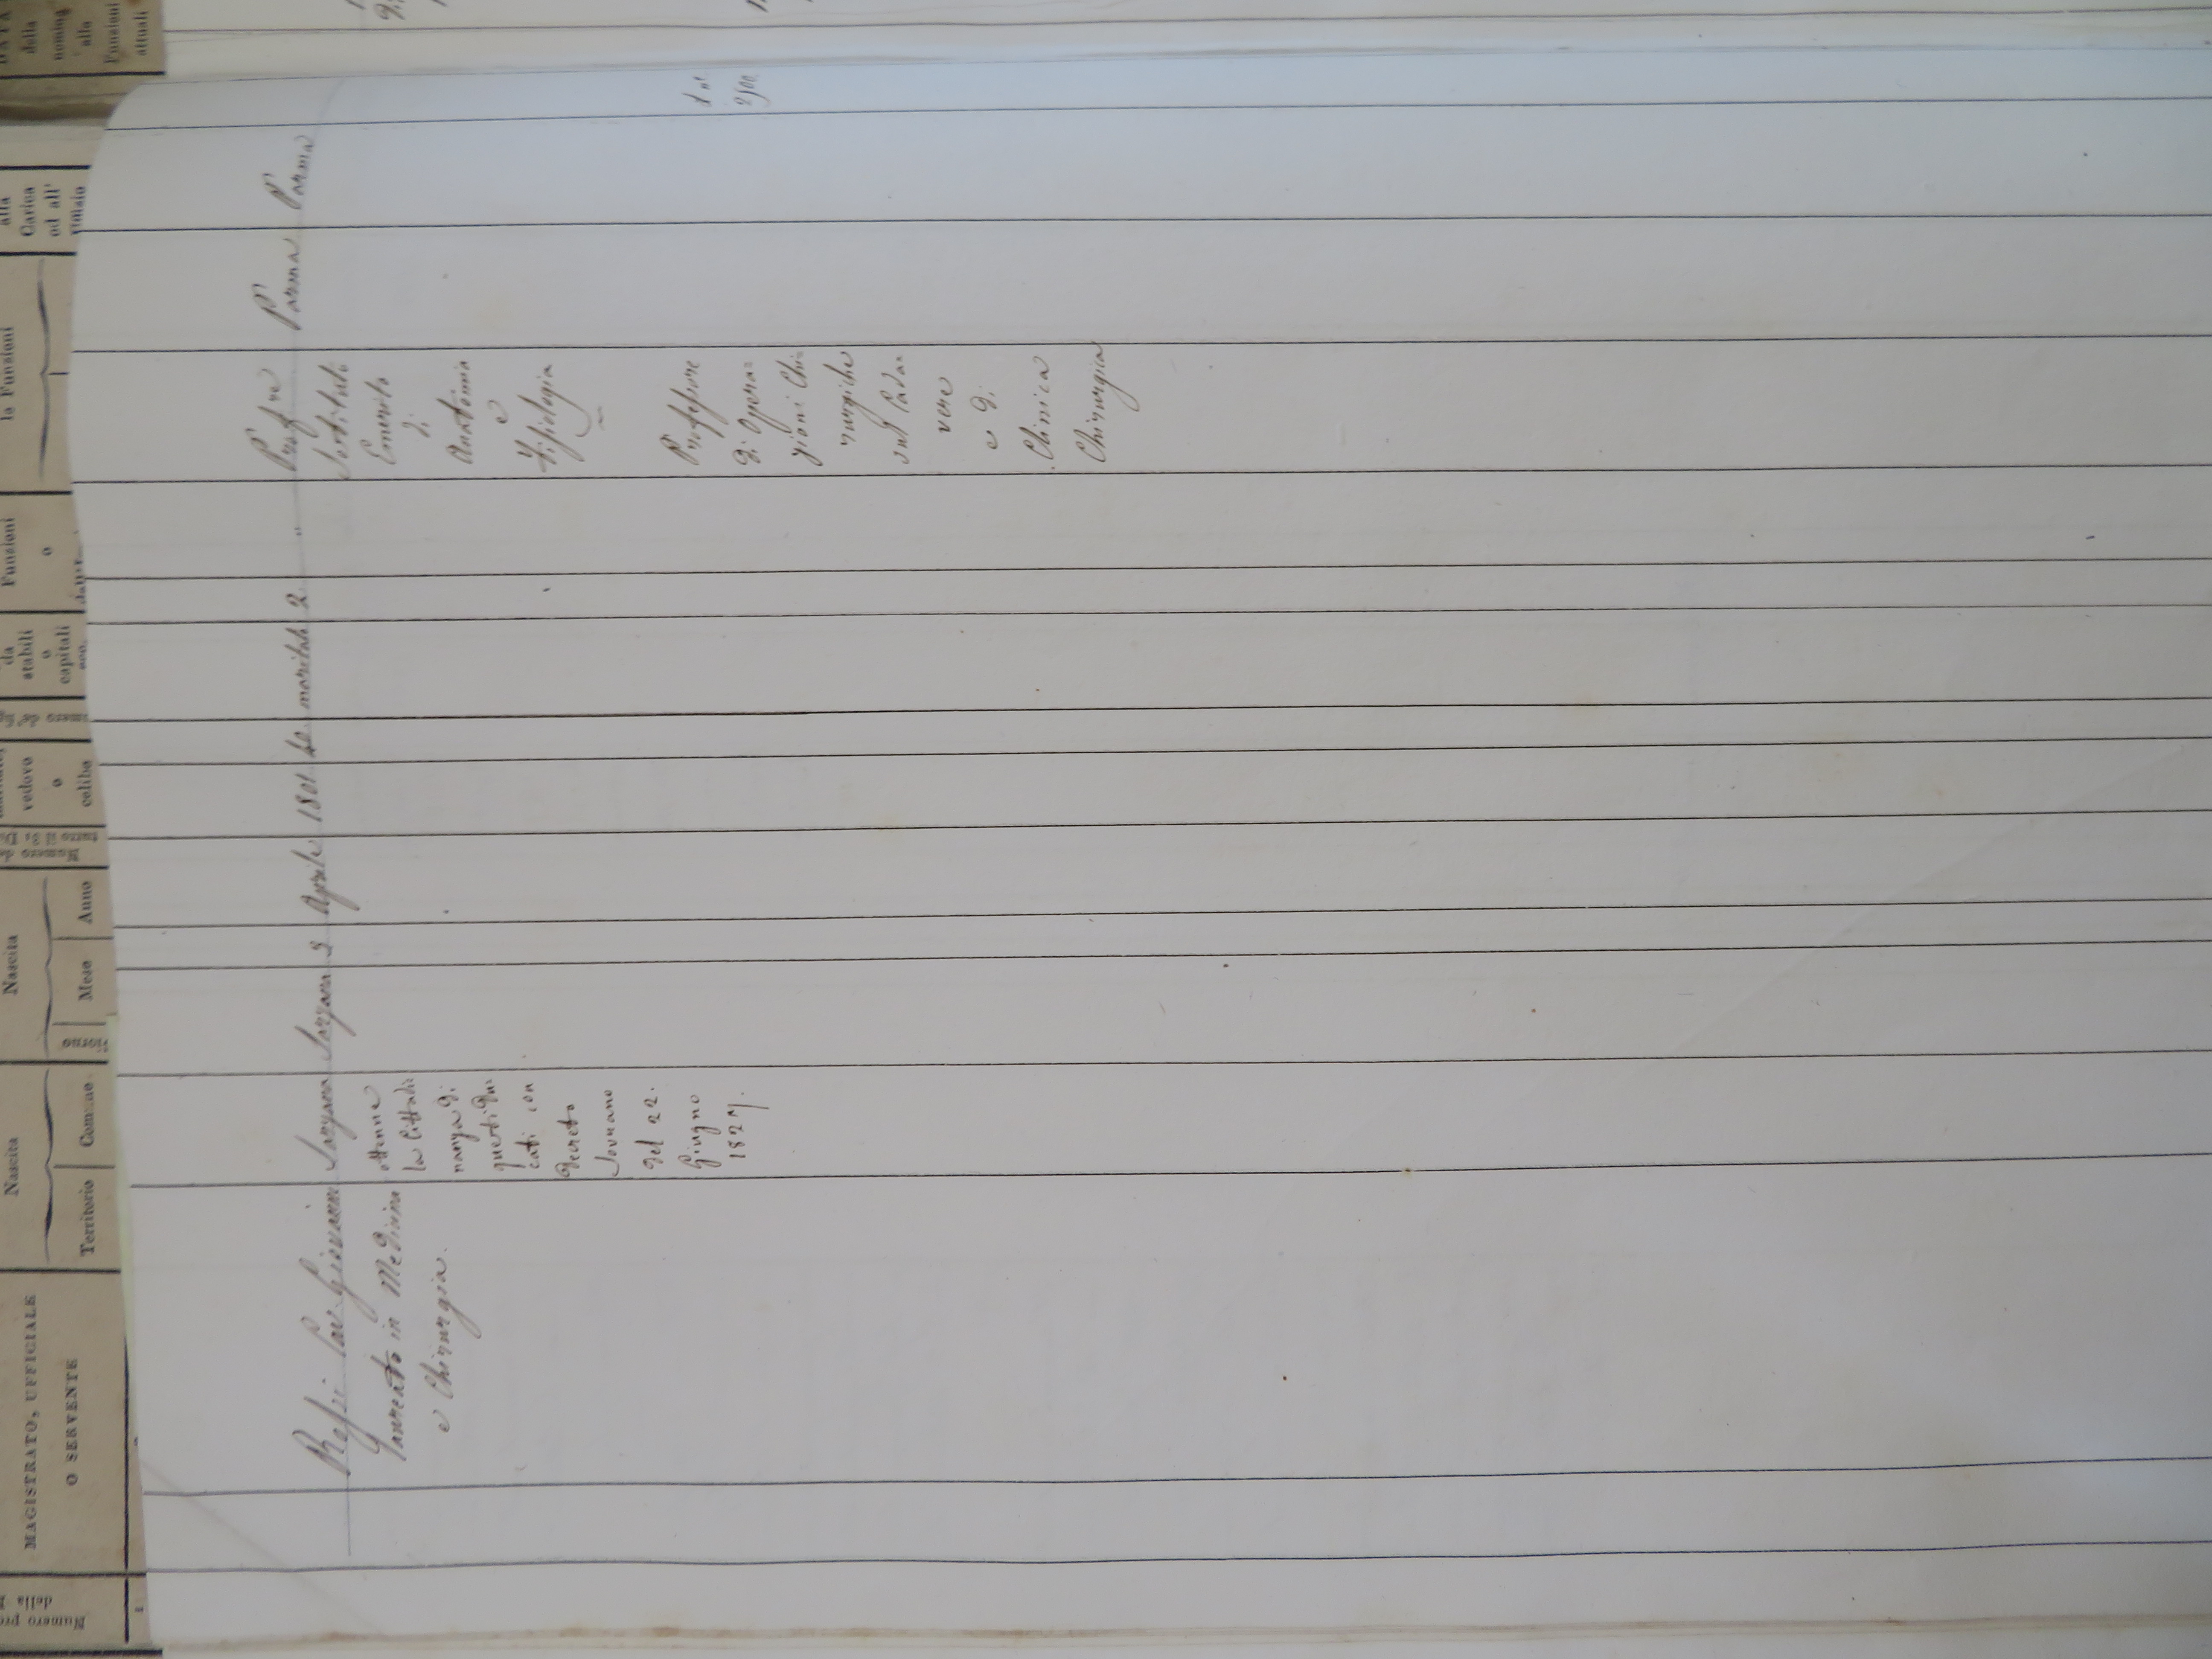 MAGISTRATO, UFFICIALE
O SERVENTE
Nascita
Territorio
Comune
Nascita
Mese
Anno
vedovo
o
celibe
da
stabili
o
capitali
Funzioni
o
le Funzioni
alla
Carica
od all'
della
nomina
alle
Funzioni
attuali
Rossi Cav. Giovanni
Laureato in Medicina
e Chirurgia.
Sarzana
ottenne
la Cittadi=
nanza di
questi Du=
cati con
Decreto
Sovrano
del 22.
Giugno
1827.
Sarzana
3
Aprile
1801
maritato
2
"
Prof.re
Sostituto
Emerito
di
Anatomia
e
Fisiologia
Professore
di Opera=
zioni Chi=
rurgiche
sul Cada=
vere
e di
Clinica
Chirurgica
Parma
Parma
2500